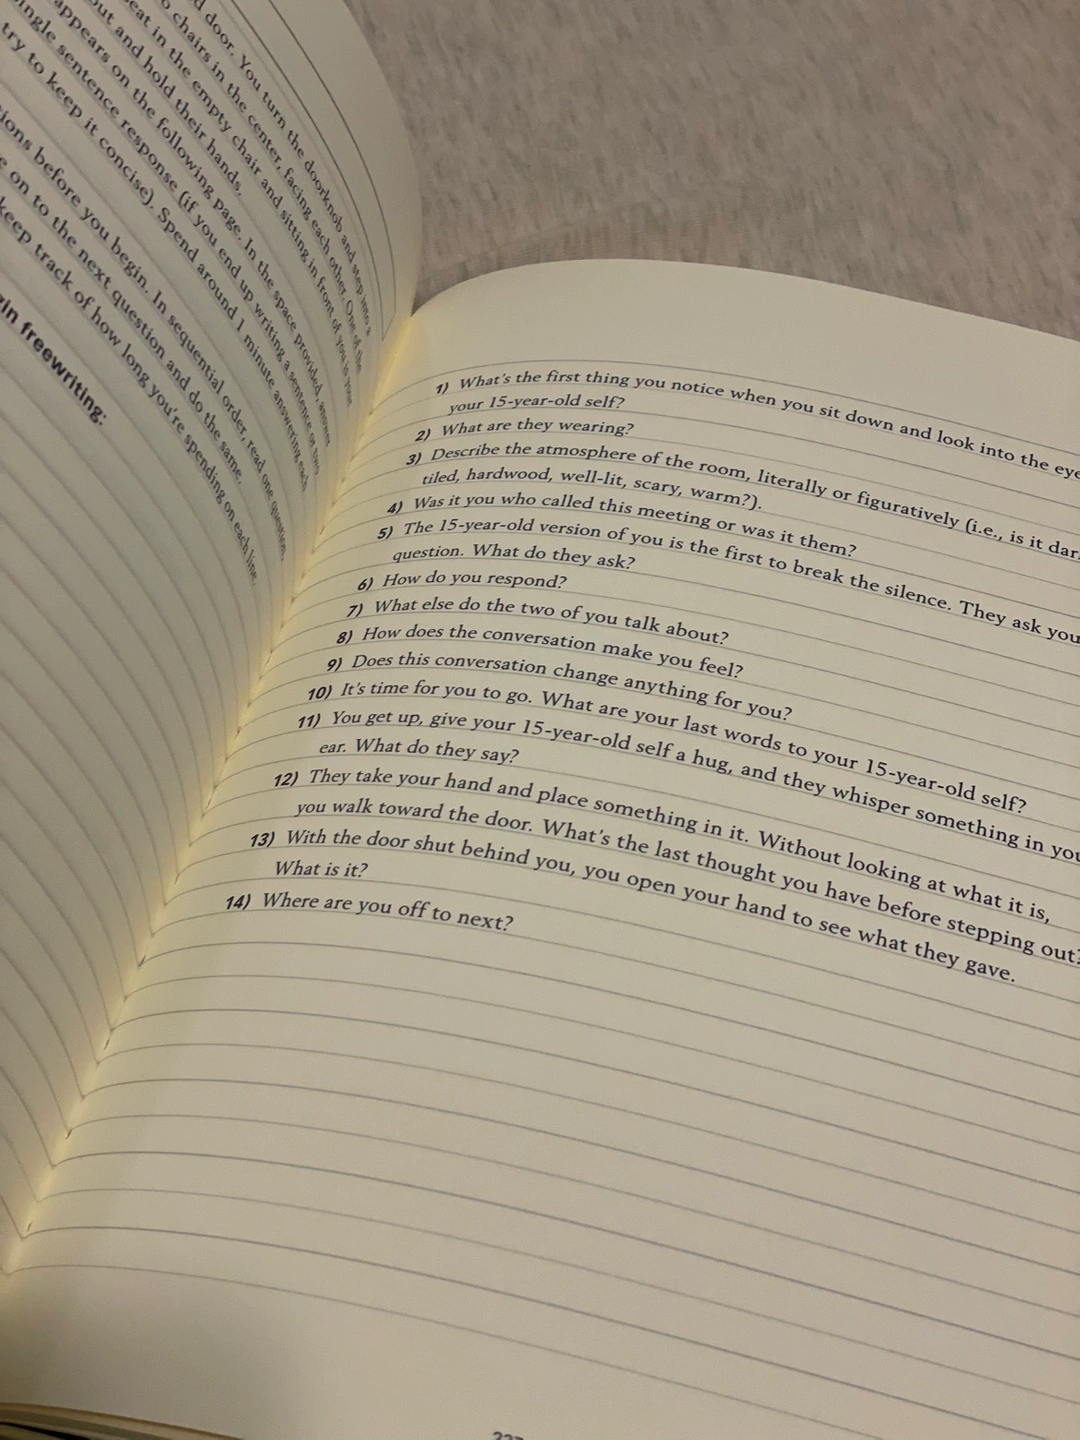 d door. You turn the doorknob and step into a
o chairs in the center, facing each other. One of the
eat in the empty chair and sitting in front of you is your
out and hold their hands.
appears on the following page. In the space provided, answer
ingle sentence response (if you end up writing a sentence or two,
try to keep it concise). Spend around 1 minute answering each
ions before you begin. In sequential order, read one question,
e on to the next question and do the same.
keep track of how long you're spending on each line.
gin freewriting:
1) What's the first thing you notice when you sit down and look into the eye
your 15-year-old self?
2) What are they wearing?
3) Describe the atmosphere of the room, literally or figuratively (i.e., is it dar
tiled, hardwood, well-lit, scary, warm?).
4) Was it you who called this meeting or was it them?
5) The 15-year-old version of you is the first to break the silence. They ask you
question. What do they ask?
6) How do you respond?
7) What else do the two of you talk about?
8) How does the conversation make you feel?
9) Does this conversation change anything for you?
10) It's time for you to go. What are your last words to your 15-year-old self?
11) You get up, give your 15-year-old self a hug, and they whisper something in you
ear. What do they say?
12) They take your hand and place something in it. Without looking at what it is,
you walk toward the door. What's the last thought you have before stepping out?
13) With the door shut behind you, you open your hand to see what they gave.
What is it?
14) Where are you off to next?